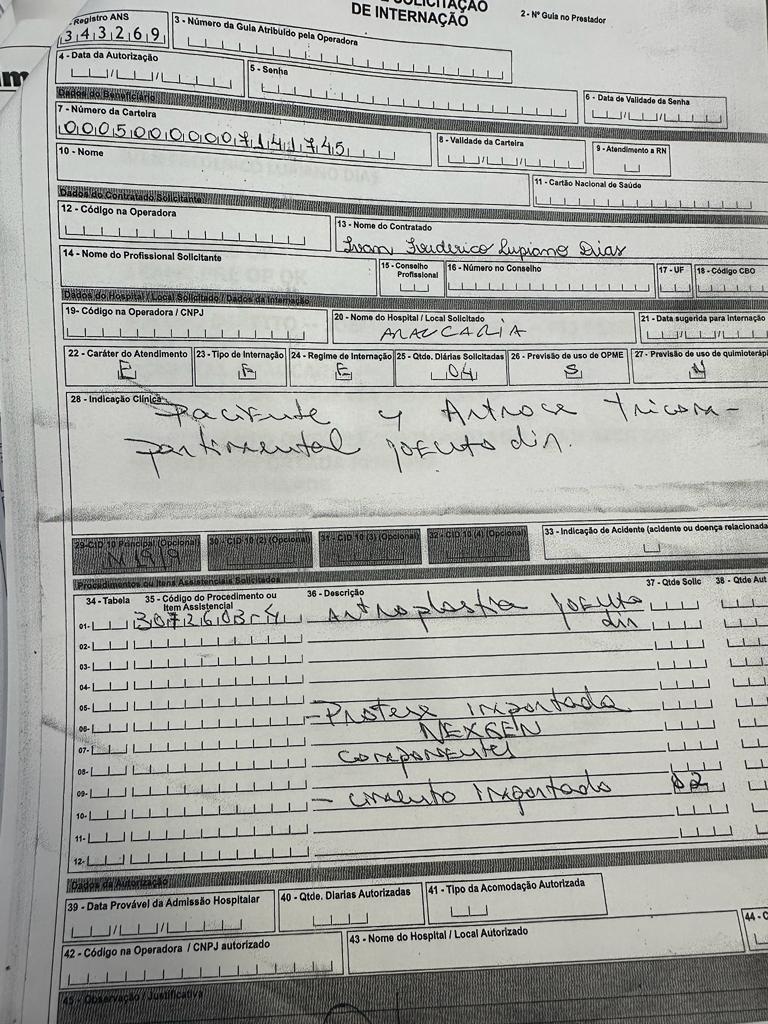 SOLICITAÇÃO
DE INTERNAÇÃO
2- Nº Guia no Prestador
Registro ANS
343269
3 - Número da Guia Atribuído pela Operadora
4 - Data da Autorização
5 - Senha
6 - Data de Validade da Senha
Dados do Beneficiário
7 - Número da Carteira
00050000007141745
8 - Validade da Carteira
9 - Atendimento a RN
10 - Nome
11 - Cartão Nacional de Saúde
Dados do Contratado Solicitante
12 - Código na Operadora
13 - Nome do Contratado
Ivan Frederico Lupiano Dias
14 - Nome do Profissional Solicitante
15 - Conselho Profissional
16 - Número no Conselho
17 - UF
18 - Código CBO
Dados do Hospital / Local Solicitado / Dados da Internação
19- Código na Operadora / CNPJ
20 - Nome do Hospital / Local Solicitado
ARAUCARIA
21 - Data sugerida para internação
22 - Caráter do Atendimento
E
23 - Tipo de Internação
24 - Regime de Internação
E
25 - Qtde. Diárias Solicitadas
04
26 - Previsão de uso de OPME
S
27 - Previsão de uso de quimioteráp
N
28 - Indicação Clínica
Paciente Artrose tricom-
partimental joelho dir.
29-CID 10 Principal (Opcional)
M 19/9
30 - CID 10 (2) (Opcional)
31 - CID 10 (3) (Opcional)
32 - CID 10 (4) (Opcional)
33 - Indicação de Acidente (acidente ou doença relacionada
Procedimentos ou Itens Assistenciais Solicitados
34 - Tabela
35 - Código do Procedimento ou Item Assistencial
36 - Descrição
37 - Qtde Solic
38 - Qtde Aut
01- 3072603-4 Artroplastia joelho
dir
02-
03-
04-
05- - Protese importada
06- NEXGEN
07- componentes
08-
09- - cimento importado 02
10-
11-
12-
Dados da Autorização
39 - Data Provável da Admissão Hospitalar
40 - Qtde. Diarias Autorizadas
41 - Tipo da Acomodação Autorizada
42 - Código na Operadora / CNPJ autorizado
43 - Nome do Hospital / Local Autorizado
44 - C
45 - Observação / Justificativa